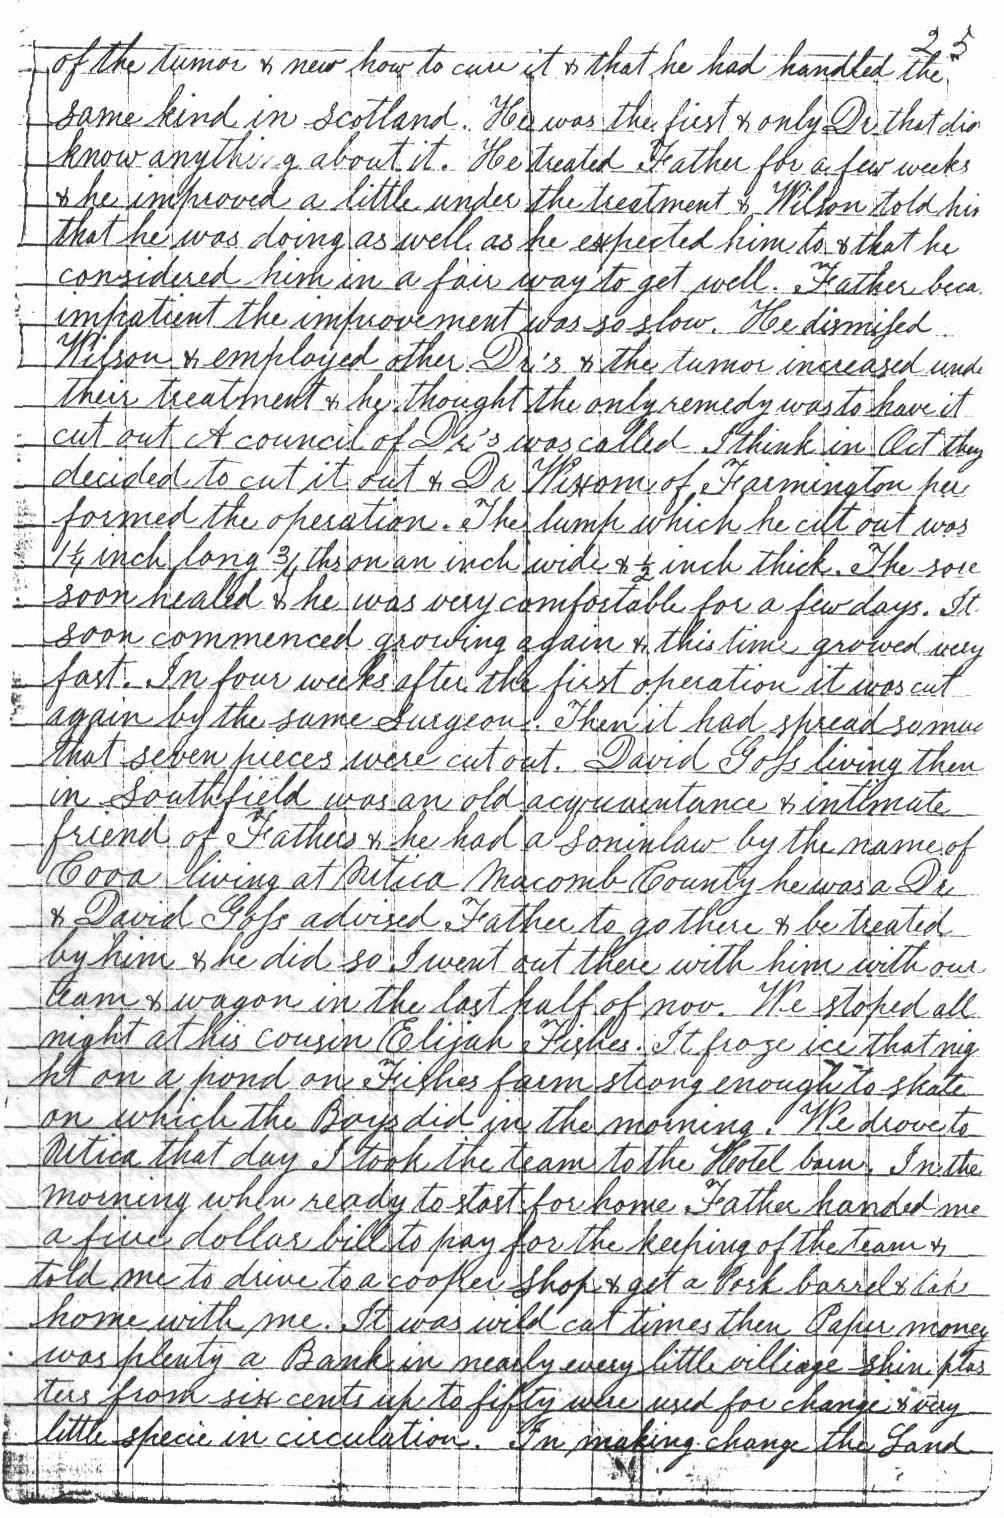 25
of the tumor & new how to cure it & that he had handled the
same kind in Scotland. He was the first & only Dr that did
know anything about it. He treated Father for a few weeks
& he improved a little under the treatment & Wilson told his
that he was doing as well as he expected him to & that he
considered him in a fair way to get well. Father beca
impatient the improvement was so slow. He dismissed
Wilson & employed other Dr's & the tumor increased unde
their treatment & he thought the only remedy was to have it
cut out A council of Dr's was called I think in Oct they
decided to cut it out & Dr Wixom of Farmington per
formed the operation. The lump which he cut out was
1¼ inch long ¾ ths on an inch wide & ½ inch thick. The sore
soon healed & he was very comfortable for a few days. It
soon commenced growing again & this time growed very
fast. In four weeks after the first operation it was cut
again by the same surgeon. Then it had spread so muc
that seven pieces were cut out. David Goss living then
in Southfield was an old acquaintance & intimate
friend of Fathers & he had a soninlaw by the name of
living at Utica Macomb County he was a Dr
& David Goss advised Father to go there & be treated
by him & he did so I went out there with him with our
team & wagon in the last half of nov. We stoped all
night at his cousin Elijah Fishes. It froze ice that nig
ht on a pond on Fishes farm strong enough to skate
on which the Boys did in the morning. We drove to
Utica that day I took the team to the Hotel barn. In the
morning when ready to start for home Father handed me
a five dollar bill to pay for the keeping of the team &
told me to drive to a cooper shop & get a Pork barrel & take
home with me. It was wild cat times then Paper money
was plenty a Bank in nearly every little villiage shin plas
ters from six cents up to fifty were used for change & very
little specie in circulation. In making change the Land